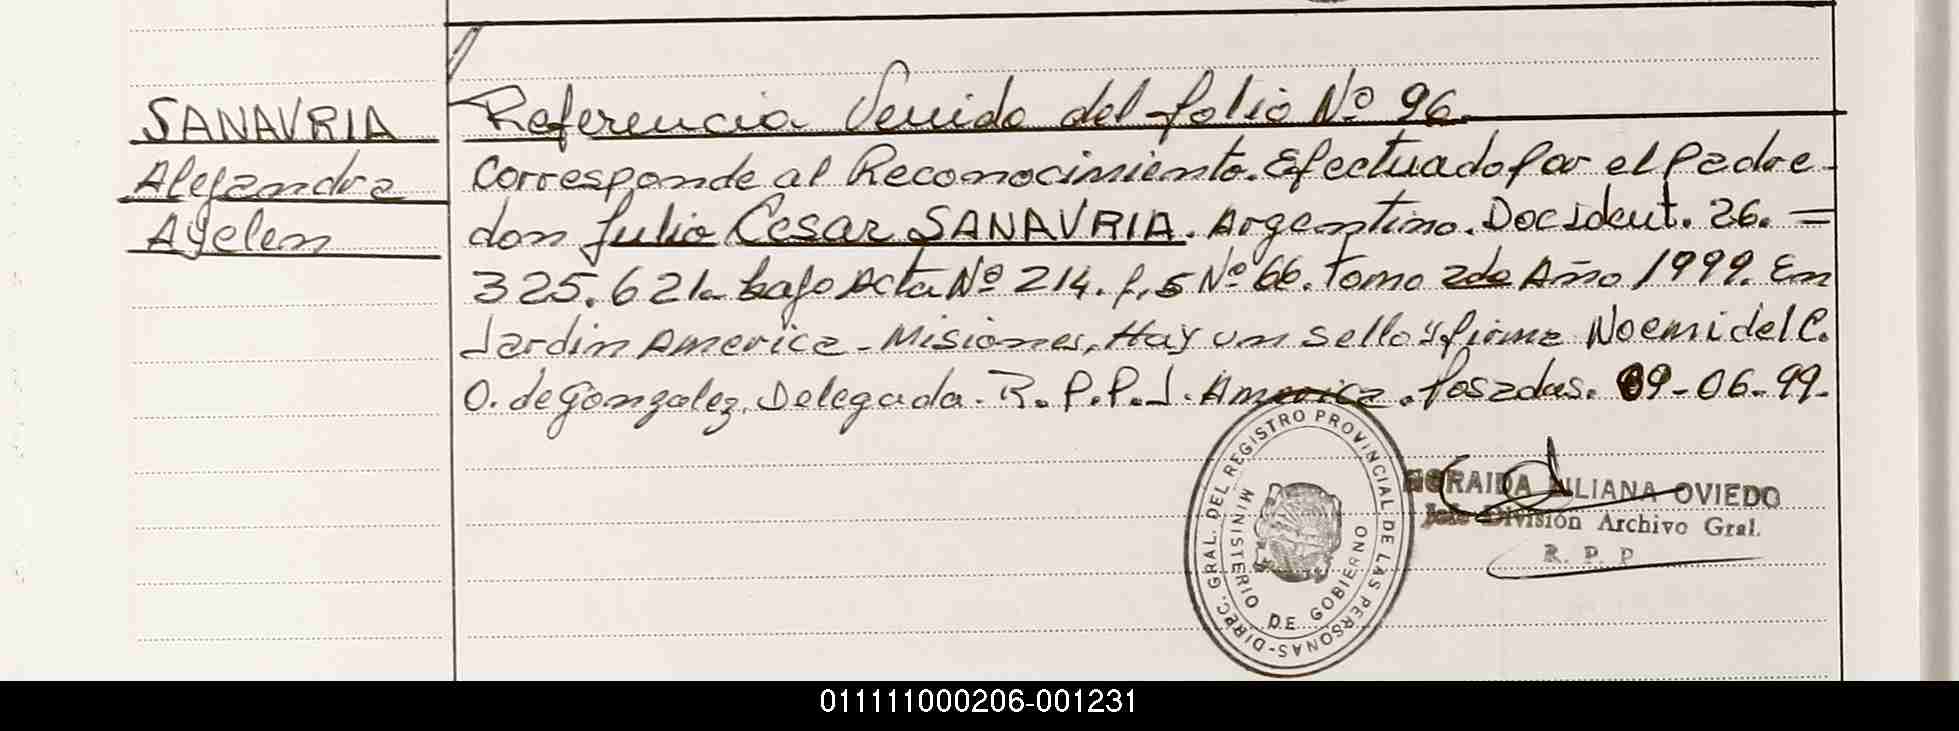 SANAVRIA
Alejandra
Ayelen
Referencia Venido del folio Nº 96.
Corresponde al Reconocimiento. Efectuado por el Padre
don Julio Cesar SANAVRIA. Argentino. Doc Ident. 26. =
325.621. bajo Acta Nº 214. f,s Nº 66. Tomo 2do Año 1999. En
Jardin America - Misiones, Hay un sello y firma Noemi del C.
O. de Gonzalez. Delegada. R. P. P. J. America. Posadas. 09-06-99.
DIREC. GRAL. DEL REGISTRO PROVINCIAL DE LAS PERSONAS-
MINISTERIO DE GOBIERNO
LILIANA OVIEDO
Jefe División Archivo Gral.
R. P. P
011111000206-001231